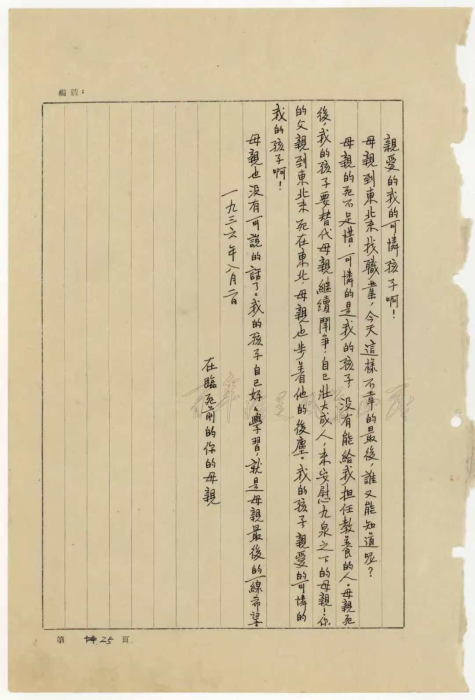 編號：
親愛的我的可憐孩子啊！
母親到東北來找職業，今天這樣不幸的最後，誰又能知道呢？
母親的死不足惜，可憐的是我的孩子，没有能給我担任教養的人。母親死
後，我的孩子要替代母親繼續鬪争，自己壯大成人，来安慰九泉之下的母親！你
的父親到東北来死在東北，母親也步着他的後塵。我的孩子，親愛的可憐的
我的孩子啊！
母親也没有可說的話了。我的孩子自己好好學習，就是母親最後的一線希望
一九三六年八月二日
在臨死前的你的母親
第 25 頁